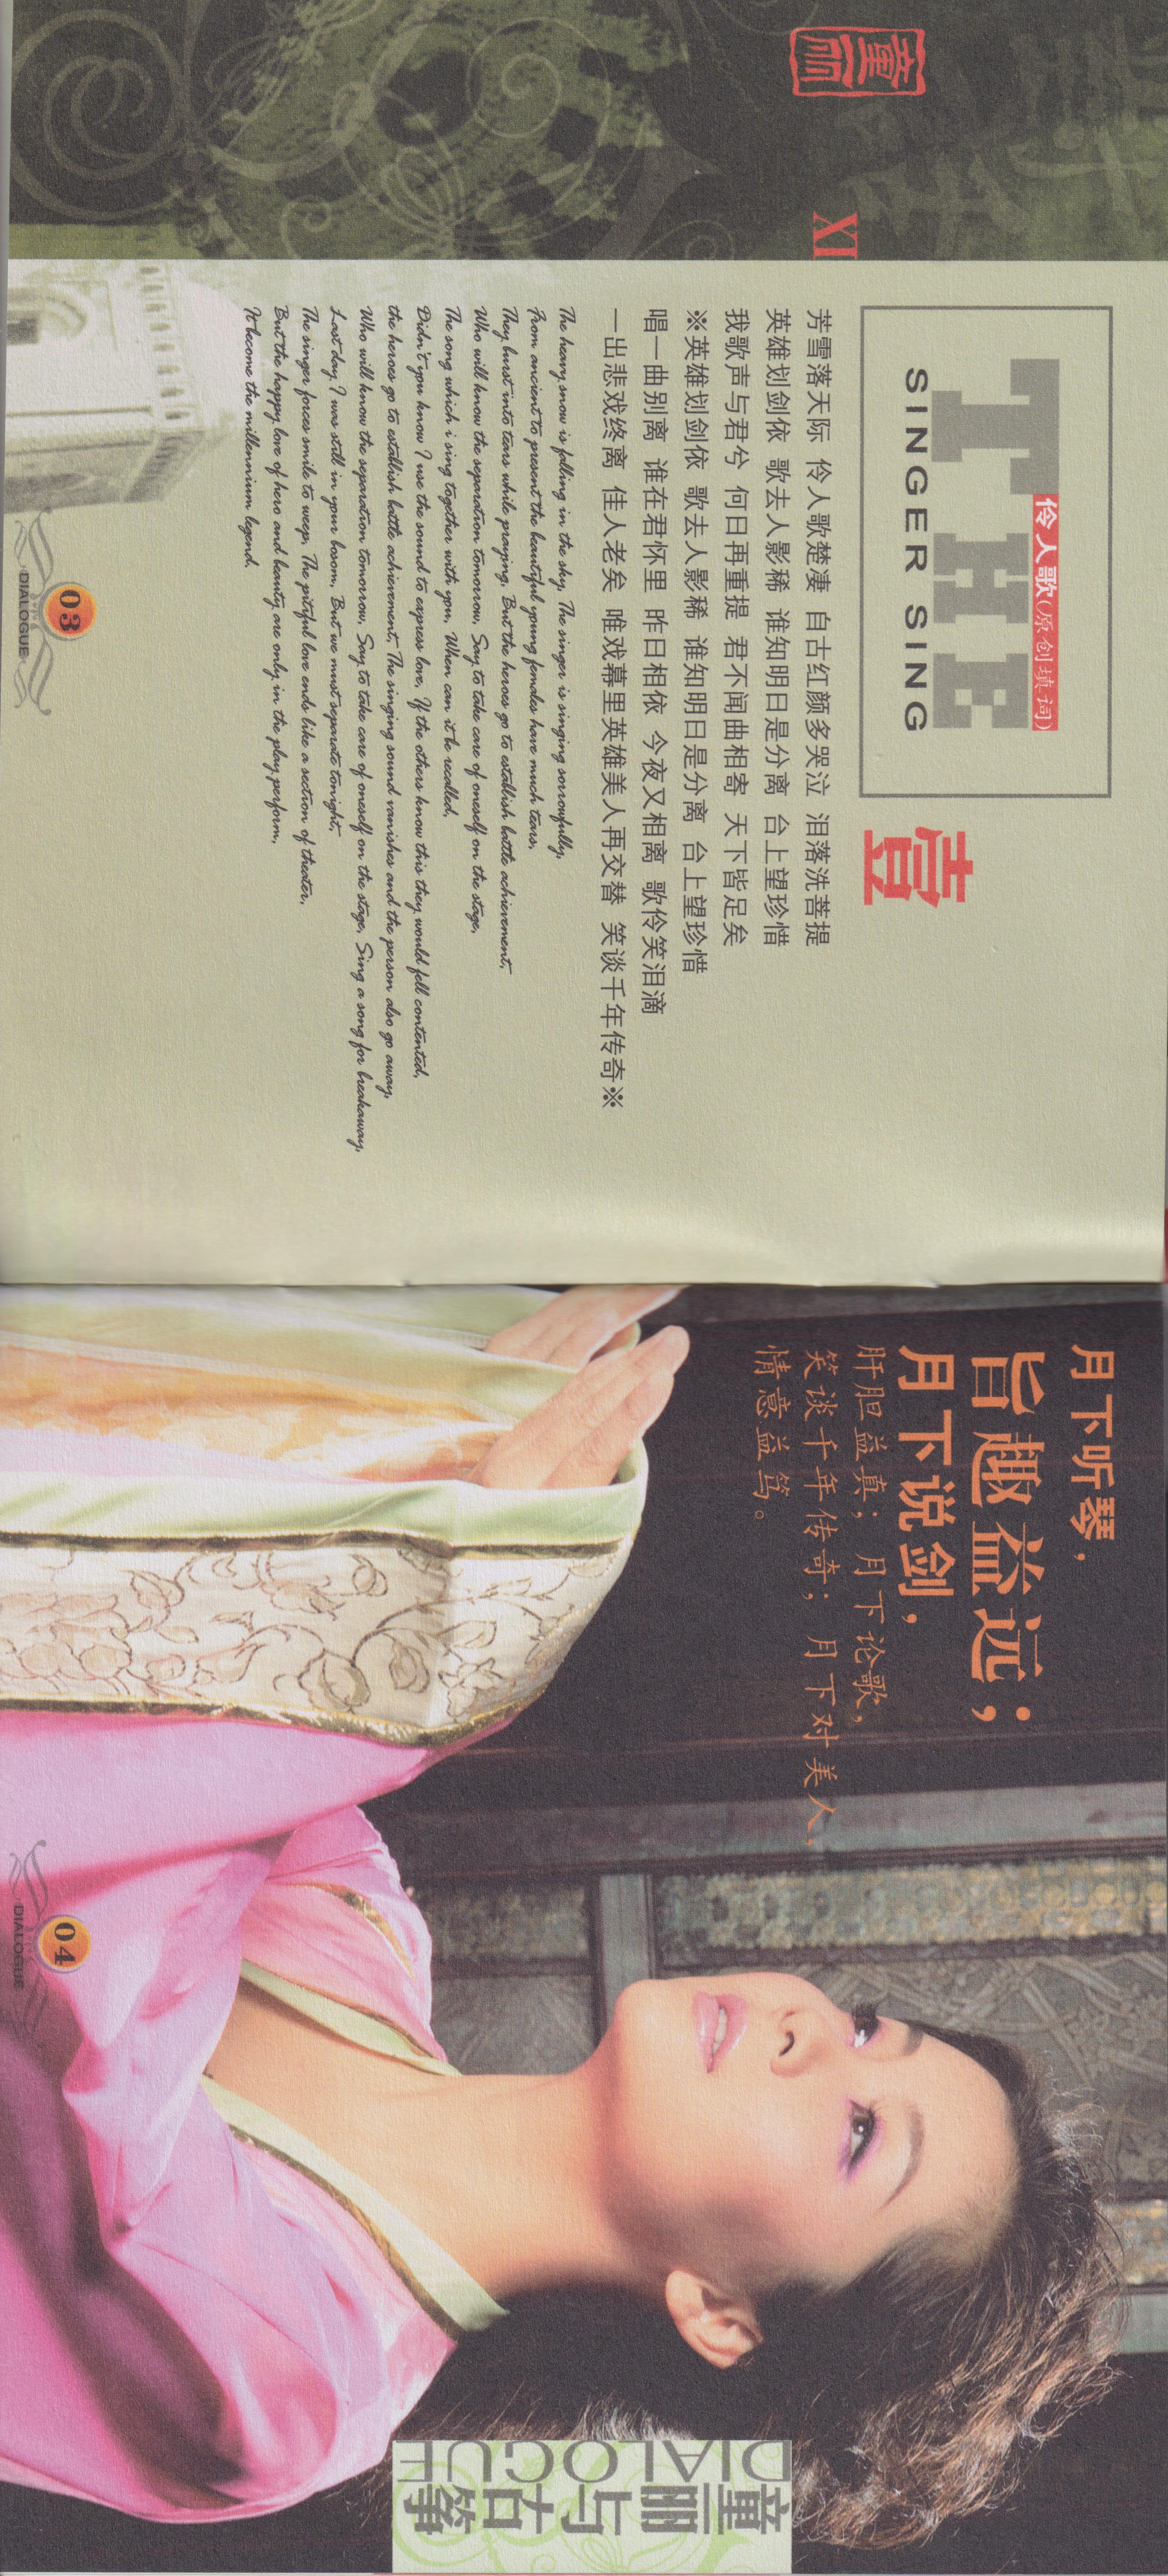 童丽
XI
THE
伶人歌(原创填词)
SINGER SING
壹
芳雪落天际 伶人歌楚凄 自古红颜多哭泣 泪落洗菩提
英雄划剑依 歌去人影稀 谁知明日是分离 台上望珍惜
我歌声与君兮 何日再重提 君不闻曲相寄 天下皆足矣
※英雄划剑依 歌去人影稀 谁知明日是分离 台上望珍惜
唱一曲别离 谁在君怀里 昨日相依 今夜又相离 歌伶笑泪滴
一出悲戏终离 佳人老矣 唯戏幕里英雄美人再交替 笑谈千年传奇※
The heavy snow is falling in the sky, The singer is singing sorrowfully,
From ancient to present the beautiful young females have much tears,
They burst into tears while praying, But the heroes go to establish battle achievement,
Who will know the separation tomorrow, Say to take care of oneself on the stage,
The song which i sing together with you, When can it be recalled,
Didn't you know I use the sound to express love, If the others know this they would fell contented,
the heroes go to establish battle achievement, The singing sound vanishes and the person also go away,
Who will know the separation tomorrow, Say to take care of oneself on the stage, Sing a song for breakaway,
Last day, I was still in your bosom, But we must separate tonight,
The singer forces smile to weep, The pitiful love ends like a section of theater,
But the happy love of hero and beauty are only in the play perform,
It become the millennium legend.
03
DIALOGUE
月下听琴，
旨趣益远；
月下说剑，
肝胆益真；月下论歌，
笑谈千年传奇；月下对美人，
情意益笃。
04
DIALOGUE
DIALOGUE
童丽与古筝